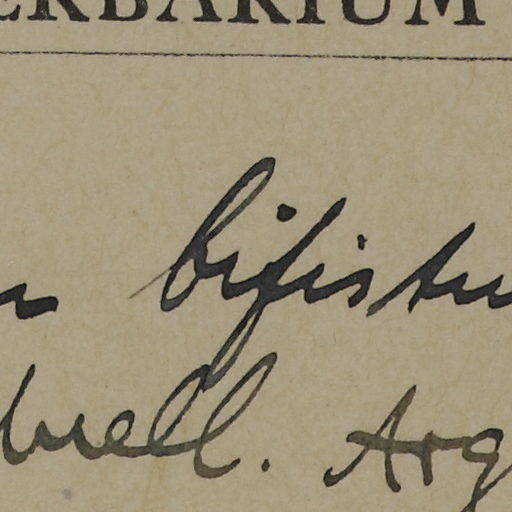 ERBARIUM
bifistu
ell. Arg